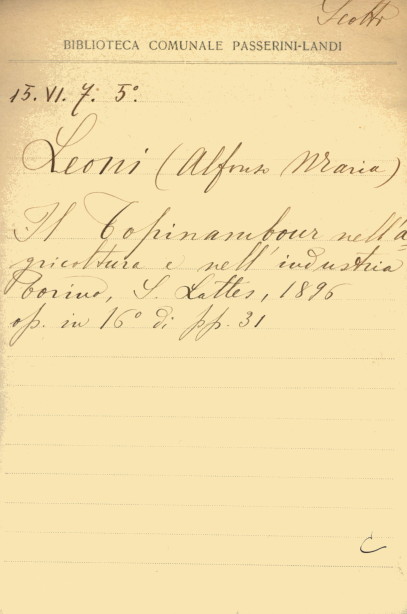 Scotti
BIBLIOTECA COMUNALE PASSERINI-LANDI
15. VI. 7. 5º.
Leoni (Alfonso Maria)
Il Topinambour nell'a=
gricoltura e nell'industria
Torino, S. Lattes, 1896
op. in 16º di pp. 31
C